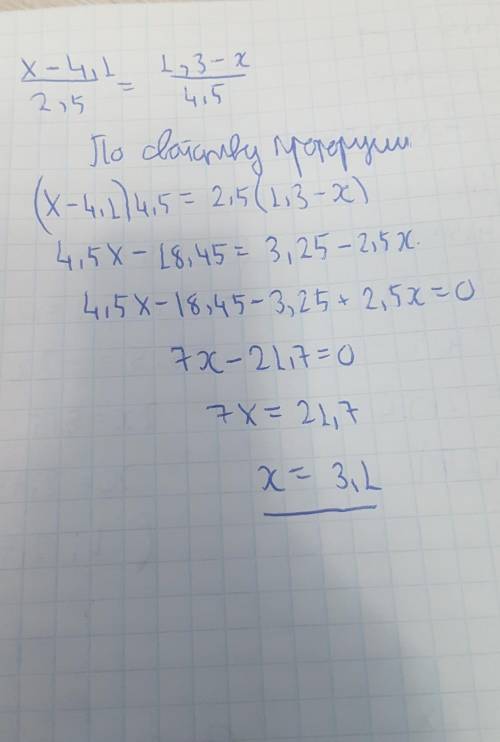 x-4,1/2,5 = 1,3-x/4,5
По свойству пропорции
(x-4,1)4,5=2,5(1,3-x)
4,5x-18,45=3,25-2,5x.
4,5x-18,45-3,25+2,5x=0
7x-21,7=0
7x=21,7
x=3,1